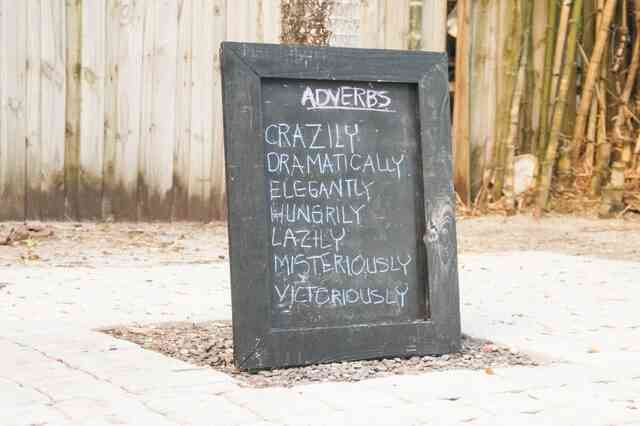 ADVERBS
CRAZILY
DRAMATICALLY
ELEGANTLY
HUNGRILY
LAZILY
MISTERIOUSLY
VICTORIOUSLY